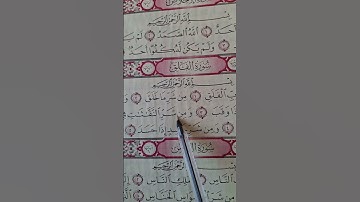 بِسْمِ اللَّهِ الرَّحْمَٰنِ الرَّحِيمِ
حَدٌ ۝ اللَّهُ الصَّمَدُ ۝ لَمْ يَ
وَلَمْ يَكُن لَّهُ كُفُوًا أَحَدٌ
سُورَةُ الْفَلَقِ
بِسْمِ اللَّهِ الرَّحْمَٰنِ الرَّحِيمِ
بِّ الْفَلَقِ ۝ مِن شَرِّ مَا خَلَقَ ۝ وَ
ذَا وَقَبَ ۝ وَمِن شَرِّ النَّفَّاثَاتِ
۝ وَمِن شَرِّ إِذَا حَسَدَ ۝
سُورَةُ النَّاسِ
بِسْمِ اللَّهِ الرَّحْمَٰنِ الرَّحِيمِ
النَّاسِ ۝ مَلِكِ النَّاسِ
مِن شَرِّ الْوَسْوَاسِ الْخَنَّاسِ